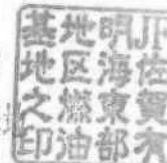 JF佐賀有
明海東部
地区燃油
基地之印